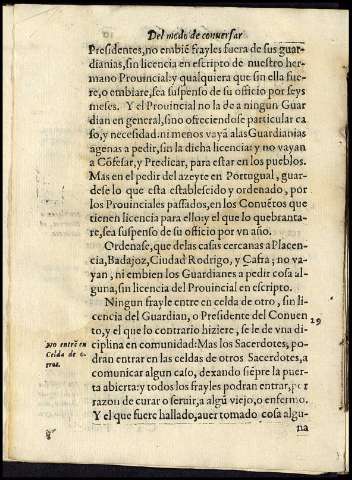 Del modo de conuersar
Presidentes, no embiẽ frayles fuera de sus guar
dianias, sin licencia en escripto de nuestro her-
mano Prouincial: y qualquiera que sin ella fue-
re, o embiare, sea suspenso de su officio por seys
meses. Y el Prouincial no la de a ningun Guar
dian en general, sino ofreciendose particular ca
so, y necesidad. ni menos vayã alas Guardianias
agenas a pedir, sin la dicha licencia: y no vayan
a Cõfesar, y Predicar, para estar en los pueblos.
Mas en el pedir del azeyte en Portugual, guar-
dese lo que esta establescido y ordenado, por
los Prouinciales passados, en los Conuẽtos que
tienen licencia para ello: y el que lo quebranta-
re, sea suspenso de su officio por vn año.
Ordenase, que delas casas cercanas a Placen-
cia, Badajoz, Ciudad Rodrigo, y Çafra; no va-
yan, ni embien los Guardianes a pedir cosa al-
guna, sin licencia del Prouincial en escripto.
Ningun frayle entre en celda de otro, sin li-
cencia del Guardian, o Presidente del Conuen
to, y el que lo contrario hiziere, se le de vna di-
ciplina en comunidad: Mas los Sacerdotes, po-
dran entrar en las celdas de otros Sacerdotes, a
comunicar algun caso, dexando siẽpre la puer-
ta abierta: y todos los frayles podran entrar, por
razon de curar o seruir, a algũ viejo, o enfermo.
Y el que fuere hallado, auer tomado cosa algu-
na
29
no entrẽ en
Celda de o-
tros.